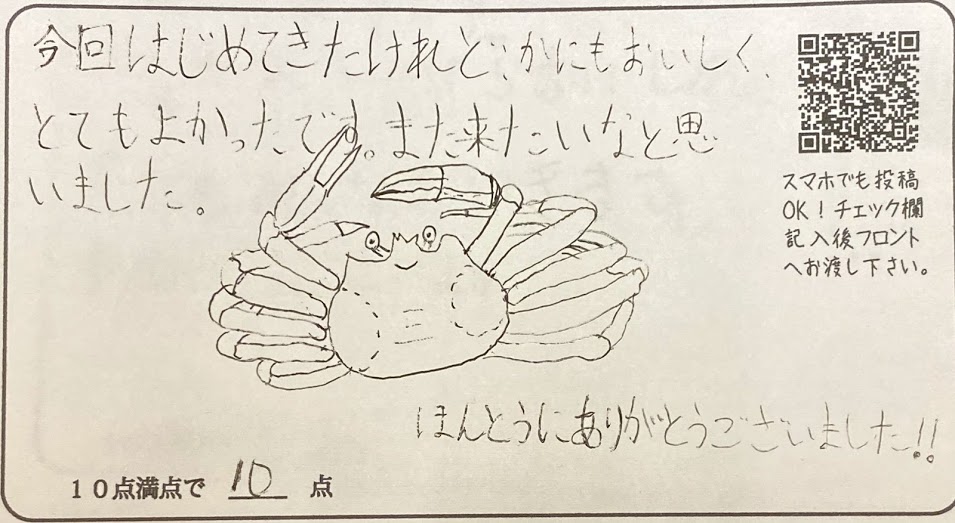 今回はじめてきたけれど、かにもおいしく、
とてもよかったです。また来たいなと思
いました。
スマホでも投稿
OK！チェック欄
記入後フロント
へお渡し下さい。
ほんとうにありがとうございました!!
１０点満点で 10 点